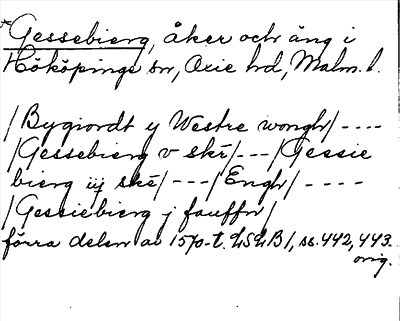 *Gessebierg, åker och äng i
Hököpinge sn, Oxie hd, Malm. l.
/Bygiordt y Westre wongh/ ----
/Gessebierg v skē/---/Gessie
bierg iij skē/---/Engh/ ----
/Gessiebierg j fauffn/
förra delen av 1570-t. LSLB/, ss. 442, 443.
orig.